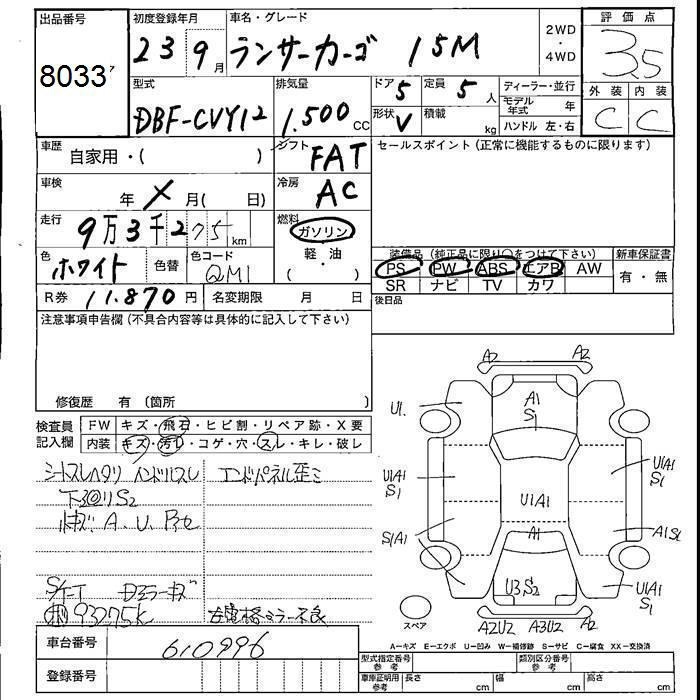 出品番号
8033
初度登録年月
23 9月
車名・グレード
ランサーカーゴ 15M
2WD
・
4WD
評価点
3.5
外装 内装
C C
型式
DBF-CVY12
排気量
1.500 CC
ドア 5
定員 5 人
形状 V
積載 kg
ディーラー・並行
モデル年式 年
ハンドル 左・右
車歴
自家用・( )
シフト
FAT
セールスポイント (正常に機能するものに限ります)
車検
年 月( 日)
冷房
AC
走行
9万3千275 km
燃料
ガソリン
・
軽油
( )
色
ホワイト
色替
色コード
QM1
装備品 (純正品に限り○をつけて下さい)
新車保証書
PS PW ABS エアB AW
SR ナビ TV カワ
有・無
R券 11.870円
名変期限 月 日
後日品
注意事項申告欄 (不具合内容等は具体的に記入して下さい)
修復歴 有 (箇所 )
検査員
記入欄
FW キズ・飛石・ヒビ割・リペア跡・X要
内装 キズ・汚レ・コゲ・穴・スレ・キレ・破レ
シートスレヘタリ ハンドルスレ
エンドパネル歪ミ
A.U.
93275K
左電格ミラー不良
車台番号
610996
登録番号
A2 A2
U1.
A1
S1
U1A1
S1
U1A1
S1
U1A1
S1A1
A1
A1S1
U3S2
U1A1
S1
スペア
A2U2 A3U2 A2
A-キズ E-エクボ U-凹み W-補修跡 S-サビ C-腐食 XX-交換済
型式指定番号
参考
類別区分番号
参考
車庫証明用
参考
長さ cm
幅 cm
高さ cm